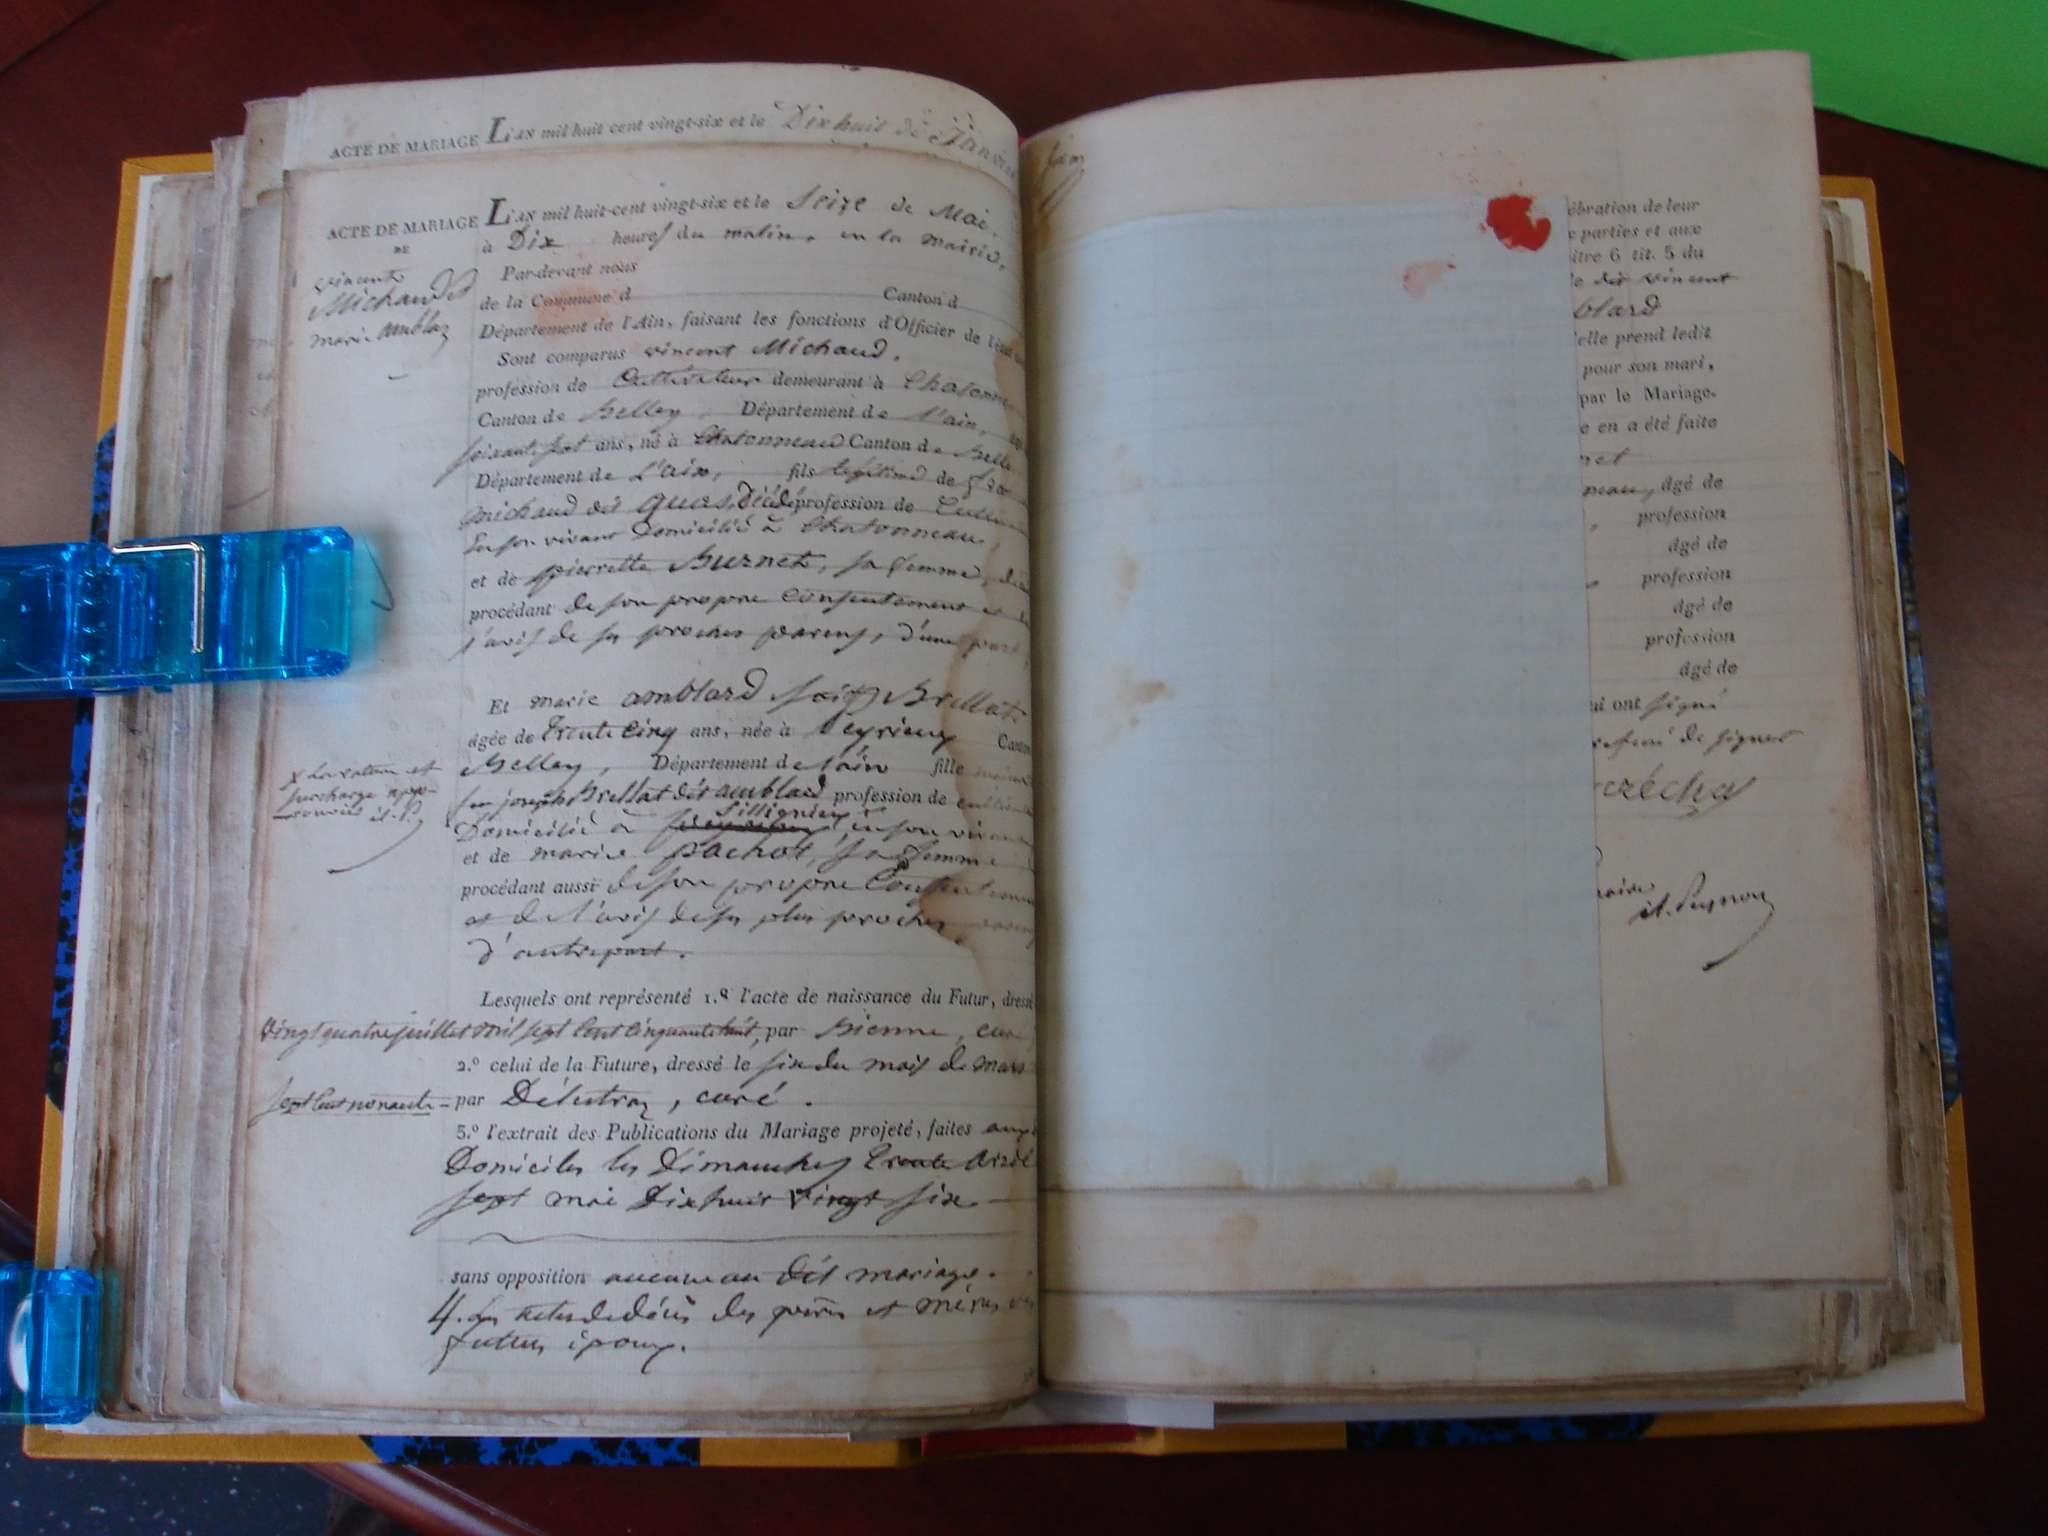 ACTE DE MARIAGE L'AN mil huit cent vingt-six et le Dixhuit de Janvier
ACTE DE MARIAGE L'AN mil huit-cent vingt-six et le Seize de Mai,
DE
vincent
Michaud et
marie amblard
à Dix heures du matin, en la mairie,
Par-devant nous
de la Commune d Canton d
Département de l'Ain, faisant les fonctions d'Officier de l'état
Sont comparus vincent Michaud,
profession de Cultivateur demeurant à Chatonneau
Canton de Belley, Département de l'ain,
soixante sept ans, né à Chatonneau Canton de Belle
Département de L'ain, fils légitime de
michaud dit Guas, Décédé profession de Cultiva
En son vivant Domicilié à Chatonneau,
et de pierrette Burnet, sa femme,
procédant de son propre Consentement et de
l'avis de ses proches parens, d'une part,
Et marie amblard Brillat
âgée de trente Cinq ans, née à Veyrieux Canton
Belley, Département de l'ain fille
feu joseph Brillat dit amblard profession de cultiva
x La rature et
surcharge app-
rouvées
Sillignieu
Domicilié à en son vivant
et de marie pachot, sa femme
procédant aussi de son propre Consentement
et de l'avis de ses plus proches parens
d'autre part.
Lesquels ont représenté 1.º l'acte de naissance du Futur, dressé
Vingt quatre juillet mil sept Cent Cinquante huit, par Bienne, curé
2.º celui de la Future, dressé le six du mois de mars
sept Cent nonante - par Délestraz, curé.
3.º l'extrait des Publications du Mariage projeté, faites aux
Domiciles les Dimanches trente avril
sept mai Dixhuit vingt six
sans opposition aucune au dit mariage.
4. les actes de décès des pères et mères des
futurs époux.
ébration de leur
x parties et aux
itre 6 tit. 5 du
e dit vincent
blard
'elle prend ledit
pour son mari,
par le Mariage.
e en a été faite
net
neau, âgé de
, profession
âgé de
profession
âgé de
profession
âgé de
ui ont signé
de signer
créchas
maire